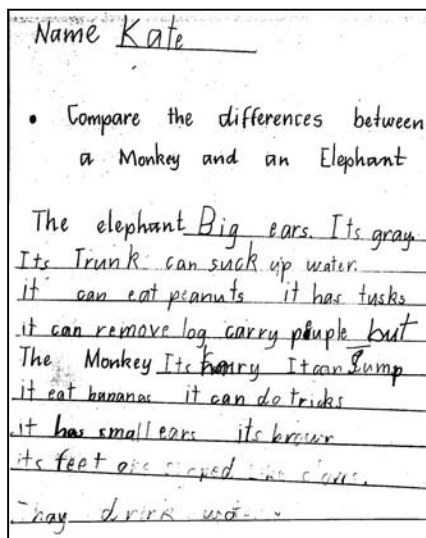 Name Kate
• Compare the differences between
a Monkey and an Elephant
The elephant Big ears. Its gray.
Its Trunk can suck up water.
it can eat peanuts it has tusks
it can remove log carry piuple but
The Monkey Its hairy It can Jump
it eat bananas it can do tricks
it has small ears its brown
its feet are shaped like
Thay drink